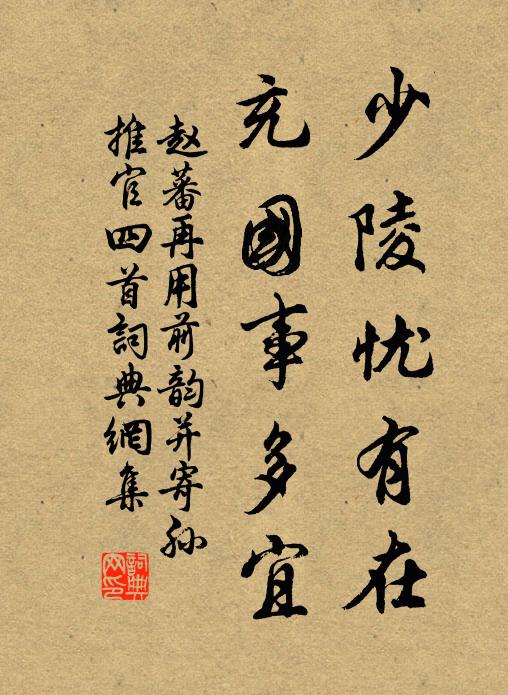 少陵忧有在
充國事多宜
赵蕃再用前韵并寄孙
推官四首詞典網集
詞典网印